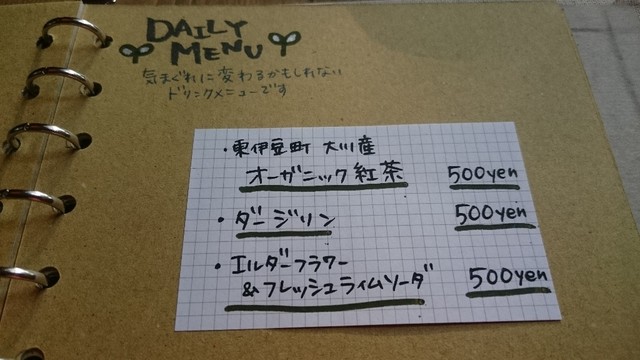 DAILY
MENU
気まぐれに変わるかもしれない
ドリンクメニューです
・東伊豆町 大川産
オーガニック紅茶 500yen
・ダージリン 500yen
・エルダーフラワー
&フレッシュライムソーダ 500yen